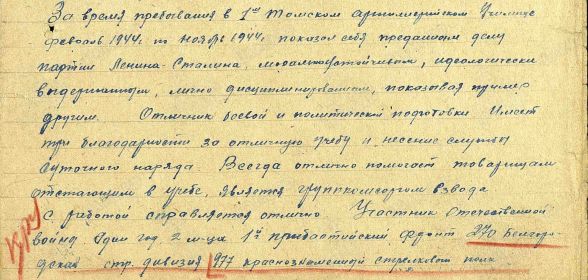 За время пребывания в 1ом Томском артиллерийском Училище
февраль 1944 г. по ноябрь 1944 г. показал себя преданным делу
партии Ленина-Сталина, моральноустойчивым, идеологически
выдержанным, лично дисциплинированным, показывая пример
другим. Отличник боевой и политической подготовки. Имеет
три благодарности за отличную учебу и несение службы
суточного наряда. Всегда отлично помогает товарищам
отстающим в учебе, является группкомсоргом взвода
с работой справляется отлично Участник Отечественной
войны один год 2 м-ца 1й прибалтийский фронт 270 Белгоро-
дская стр. дивизия 977 краснознаменной стрелковый полк